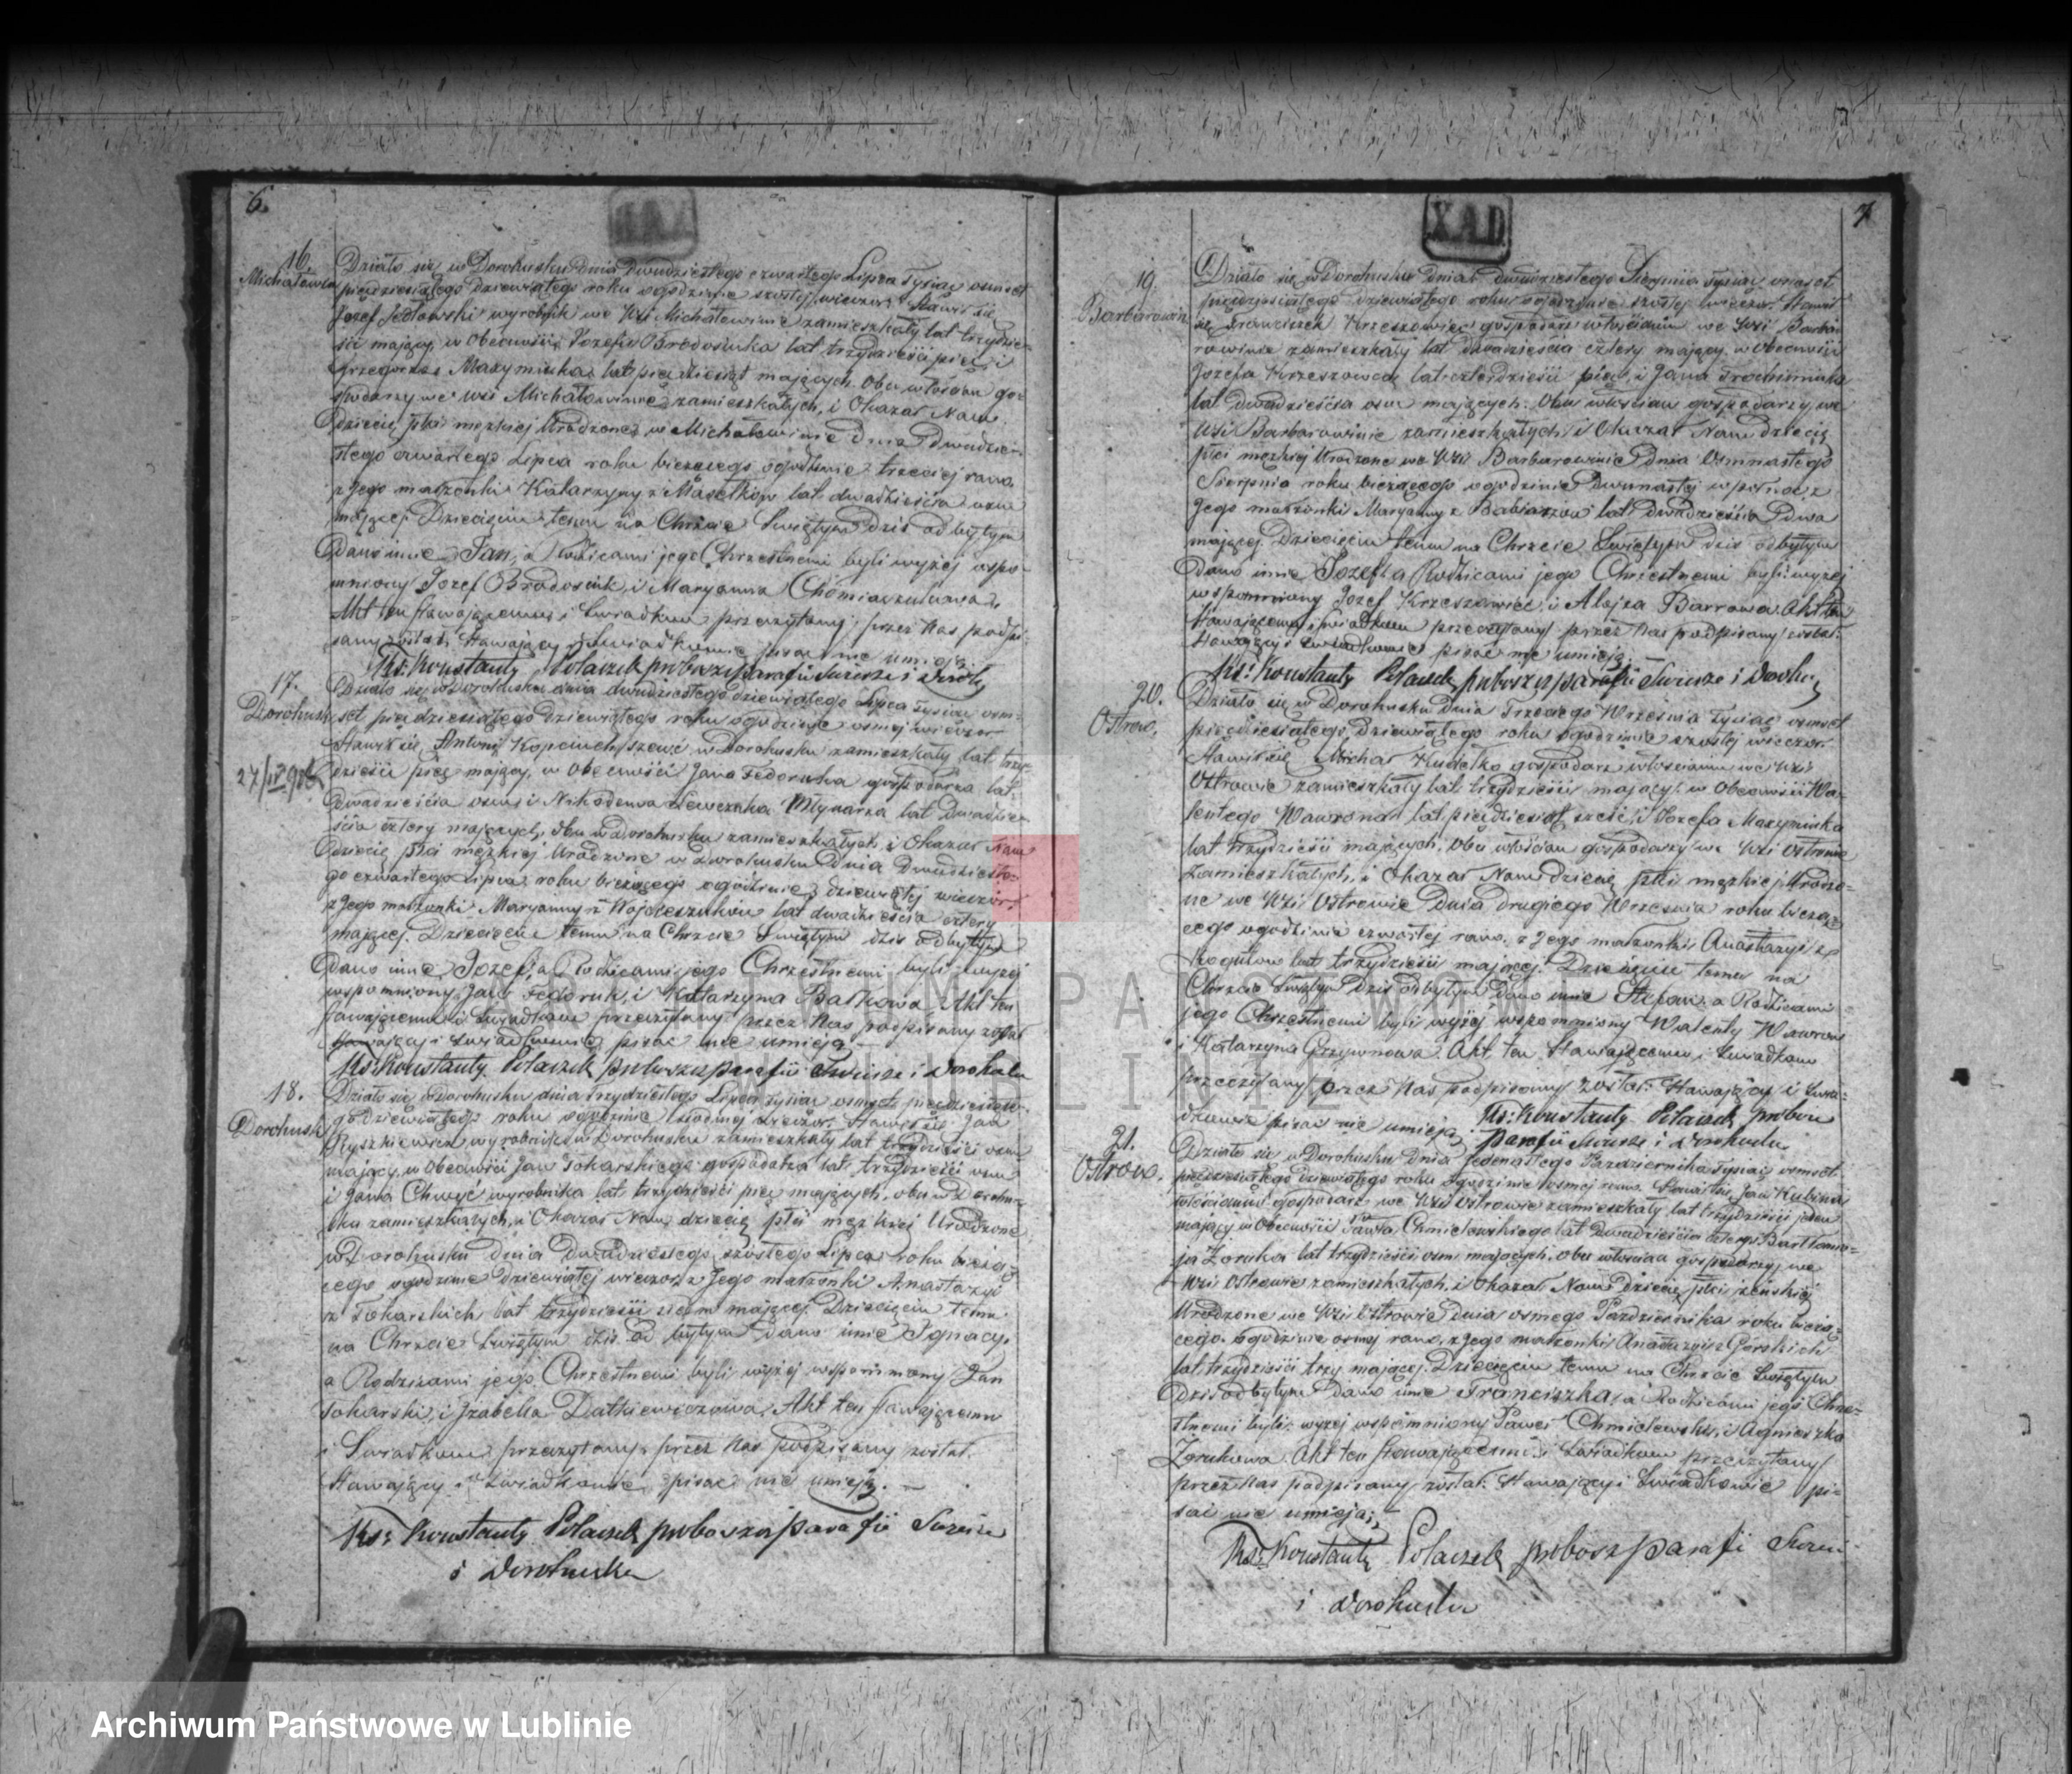 6.
XAD
16.
Michałówka
Działo się w Dorohusku dnia dwudziestego czwartego Lipca Tysiąc osmset
pięćdziesiątego dziewiątego roku o godzinie szostej wieczor. Stawił się
Jozef wyrobnik we Wsi Michałowinie zamieszkały lat trzydzie-
ści mający, w Obecności Jozefa Brodosiuka lat trzydzieści pięć, i
Grzegorza Maxymiuka lat pięćdziesiąt mających. Obu włościan go-
spodarzy we wsi Michałowinie zamieszkałych, i Okazał Nam
dziecię płci męzkiej Urodzone w Michałowinie dnia Dwudzie-
stego czwartego Lipca roku bieżącego o godzinie trzeciej rano
z Jego małżonki Katarzyny z lat dwadzieścia osm
mającej. Dziecięciu temu na Chrzcie Świętym dziś odbytym
dano imie Jan, a Rodzicami jego Chrzestnemi byli wyżej wspo-
mniony Jozef Brodosiuk, i Maryanna
Akt ten stawającemu i Świadkom przeczytany, przez Nas podpi-
sany został, Stawający i Świadkowie pisać nie umieją.
Ks: Konstanty Polaczek proboszcz parafii Świerże i Doroh
17.
Dorohusk
Działo się w Dorohusku dnia dwudziestego dziewiątego Lipca Tysiąc osm-
set pięćdziesiątego dziewiątego roku o godzinie osmej wieczor
Stawił się Antoni Kopciuch szewc w Dorohusku zamieszkały lat trzy-
dzieści pięć mający, w Obecności Jana Fedoruka gospodarza lat
dwadzieścia osm, i Nikodema Młynarza lat Dwadzie-
ścia cztery mających, obu w Dorohusku zamieszkałych i Okazał Nam
dziecię płci męzkiej Urodzone w Dorohusku Dnia Dwudzieste-
go czwartego Lipca roku bieżącego o godzinie dziewiątej wieczor
z Jego małżonki Maryanny z lat dwadzieścia cztery
mającej. Dziecięciu temu na Chrzcie Świętym dziś odbytym
dano imie Jozef, a Rodzicami jego Chrzestnemi byli wyżej
wspomniony Jan Fedoruk, i Katarzyna Akt ten
stawającemu i Świadkom przeczytany przez Nas podpisany został
Stawający i Świadkowie pisać nie umieją
Ks: Konstanty Polaczek proboszcz parafii Świerże i Dorohusku
18.
Dorohusk
Działo się w Dorohusku dnia trzydziestego Lipca tysiąc osmset pięćdziesiąte-
go dziewiątego roku o godzinie siodmej wieczor. Stawił się Jan
Ryszkiewicz wyrobnik w Dorohusku zamieszkały lat trzydzieści osm
mający, w Obecności Jana Tokarskiego gospodarza lat trzydzieści osm
i Jana Chwyć wyrobnika lat trzydzieści pięć mających, obu w Dorohu-
sku zamieszkałych, i Okazał Nam dziecię płci męzkiej Urodzone
w Dorohusku dnia Dwudziestego szostego Lipca roku bieżą-
cego o godzinie dziewiątej wieczor z Jego małżonki Anastazyi
z Tokarskich lat trzydzieści siedm mającej. Dziecięciu temu
na Chrzcie Świętym dziś odbytym dano imie Ignacy,
a Rodzicami jego Chrzestnemi byli wyżej wspomniony Jan
Tokarski, i Izabella Datkiewiczowa, Akt ten stawającemu
i Świadkom przeczytany, przez Nas podpisany został.
Stawający i Świadkowie pisać nie umieją.
Ks: Konstanty Polaczek proboszcz parafii Świerże
i Dorohusku
7
XAD
19.
Działo się w Dorohusku dnia dwudziestego Sierpnia Tysiąc osmset
pięćdziesiątego dziewiątego roku o godzinie szostej wieczor. Stawił
się Franciszek Krzeszowiec gospodarz włościanin we Wsi Barba-
rowinie zamieszkały lat dwadzieścia cztery mający, w Obecności
Jozefa Krzeszowca lat czterdzieści pięć, i Jana Trochimiuka
lat dwadzieścia osm mających. Obu włościan gospodarzy we
Wsi Barbarowinie zamieszkałych i Okazał Nam dziecię
płci męzkiej Urodzone we Wsi Barbarowinie Dnia Osmnastego
Sierpnia roku bieżącego o godzinie Dwunastej w północ z
Jego małżonki Maryanny z lat Dwadzieścia Dwa
mającej. Dziecięciu temu na Chrzcie Świętym dziś odbytym
dano imie Jozef, a Rodzicami jego Chrzestnemi byli wyżej
wspomniony Jozef Krzeszowiec, i Barrowa. Akt ten
Stawającemu i Świadkom przeczytany przez Nas podpisany został.
Stawający i Świadkowie pisać nie umieją.
Ks: Konstanty Polaczek proboszcz parafii Świerże i Doroh
20.
Ostrow.
Działo się w Dorohusku dnia Trzeciego Września Tysiąc osmset
pięćdziesiątego dziewiątego roku o godzinie szostej wieczor.
Stawił się Michał Kudełka gospodarz włościanin we wsi
Ostrowie zamieszkały lat trzydzieści mający. w Obecności Wa-
lentego Wawrona lat pięćdziesiąt sześć, i Jozefa Maxymiuka
lat trzydzieści mających. Obu włościan gospodarzy we Wsi Ostrowie
Zamieszkałych, i Okazał Nam dziecię płci męzkiej Urodzo-
ne we Wsi Ostrowie Dnia drugiego Września roku bieżą-
cego o godzinie czwartej rano, z Jego małżonki Anastazyi z
Kogutow lat trzydzieści mającej. Dziecięciu temu na
Chrzcie Świętym dziś odbytym dano imie Stefan: a Rodzicami
jego Chrzestnemi byli wyżej wspomniony Walenty Wawron
i Katarzyna Grzywnowa. Akt ten Stawającemu i Świadkom
przeczytany przez Nas podpisany został. Stawający i Świa-
dkowie pisać nie umieją. Ks: Konstanty Polaczek probosz
Parafii Świerże i Dorohusku
21.
Ostrow.
Działo się w Dorohusku Dnia Jedenastego Października Tysiąc osmset
pięćdziesiątego dziewiątego roku o godzinie osmej rano. Stawił się Jan Kubina
włościanin gospodarz we Wsi Ostrowie zamieszkały lat trzydzieści jeden
mający w Obecności Pawła Chmielewskiego lat Dwadzieścia cztery, i Bartłomie-
ja Zoruka lat trzydzieści osm mających. obu włościan gospodarzy we
Wsi Ostrowie zamieszkałych, i Okazał Nam Dziecię płci żeńskiej
Urodzone we Wsi Ostrowie Dnia osmego Października roku bieżą-
cego o godzinie osmej rano, z Jego małżonki Anastazyi z Górskich
lat trzydzieści trzy mającej. Dziecięciu temu na Chrzcie Świętym
Dziś odbytym dano imie Franciszka, a Rodzicami jego Chrze-
stnemi byli: wyżej wspomniony Paweł Chmielewski, i Agnieszka
Zorukowa. Akt ten stawającemu i Świadkom przeczytany
przez Nas podpisany został. Stawający i Świadkowie pi-
sać nie umieją.
Ks: Konstanty Polaczek probosz parafii
i Dorohusku
ARCHIWUM PAŃSTWOWE
W LUBLINIE
Archiwum Państwowe w Lublinie